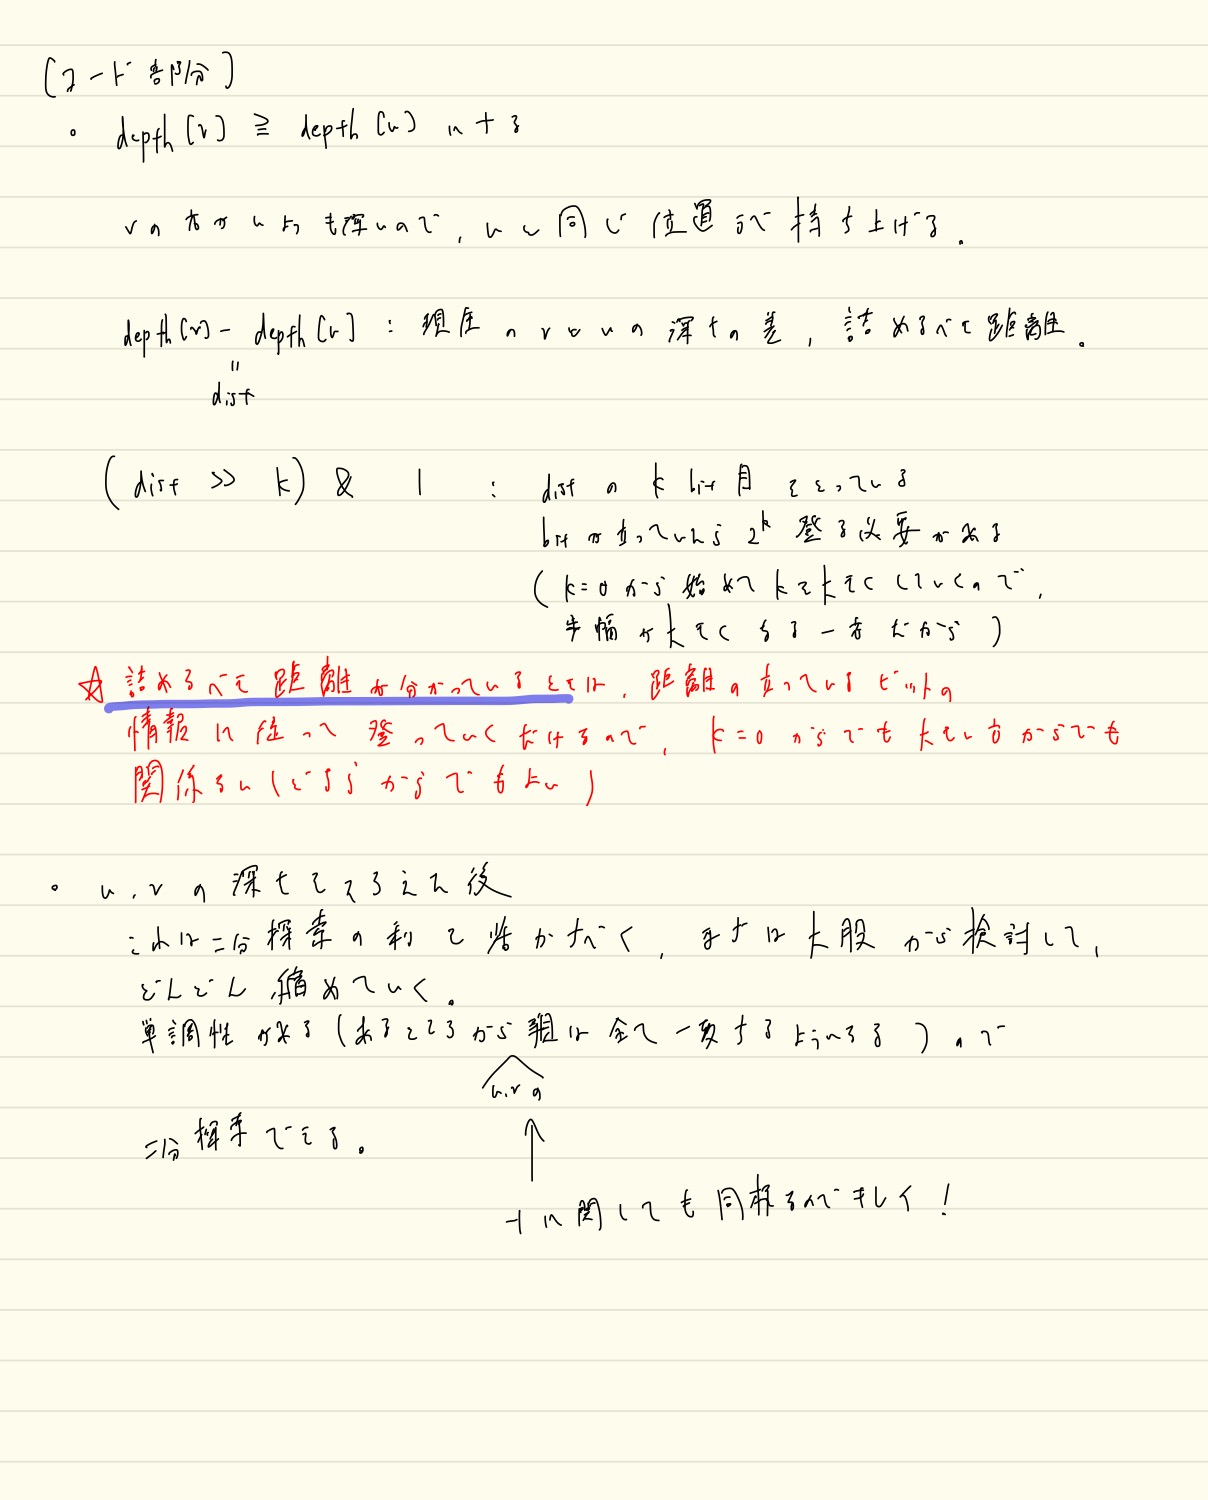 [コード部分]
・ depth[v] ≧ depth[u] にする
vの方がuよりも深いので, uと同じ位置まで持ち上げる.
depth[v] - depth[u] : 現在のvとuの深さの差, 詰めるべき距離.
=
dist
(dist >> k) & 1 : distのk bit目をとっている
bitが立っていたら 2^k 登る必要がある
(k=0から始めてkを大きくしていくので,
歩幅が大きくなる一方だから)
☆ 詰めるべき距離が分かっているときは, 距離の立っているビットの
情報に従って登っていくだけなので, k=0からでも大きい方からでも
関係ない(どちらからでもよい)
・ u,vの深さをそろえた後
これは二分探索の利を活かすべく, まずは大股から検討して,
どんどん縮めていく.
単調性がある(あるところから親は全て一致するようになる)ので
u,vの
二分探索できる.
↑
-1に関しても同様なのでキレイ!